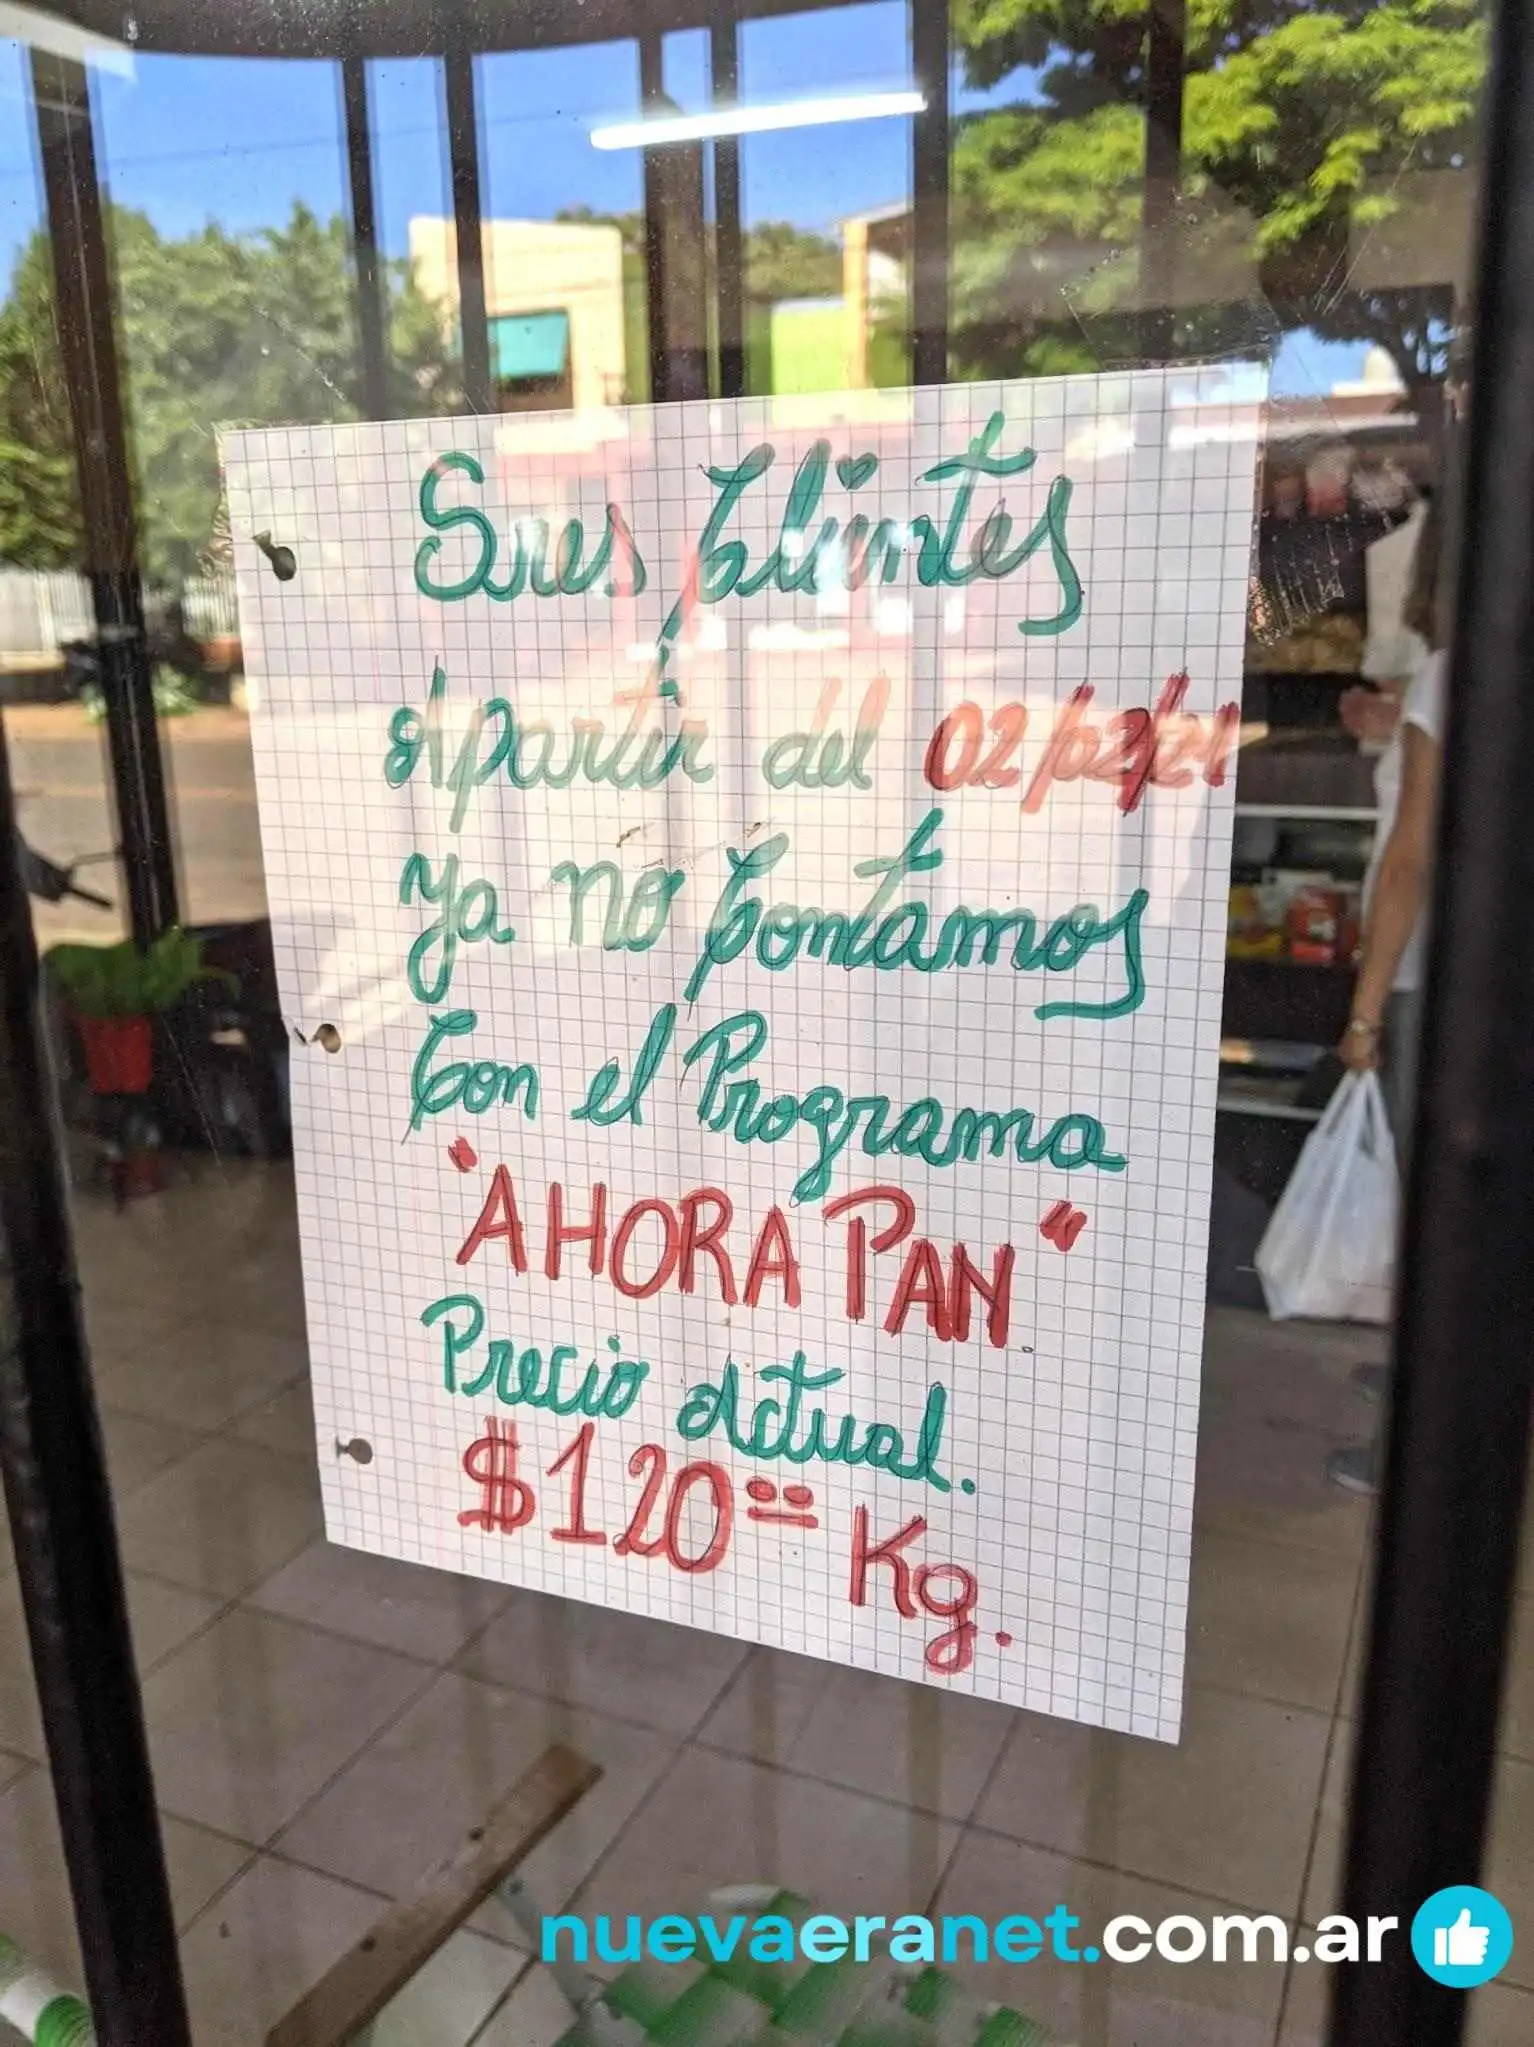 Sres Clientes
Apartir del 02/02/21
Ya no Contamos
Con el Programa
"AHORA PAN"
Precio Actual.
$120⁰⁰ Kg.
nuevaeranet.com.ar